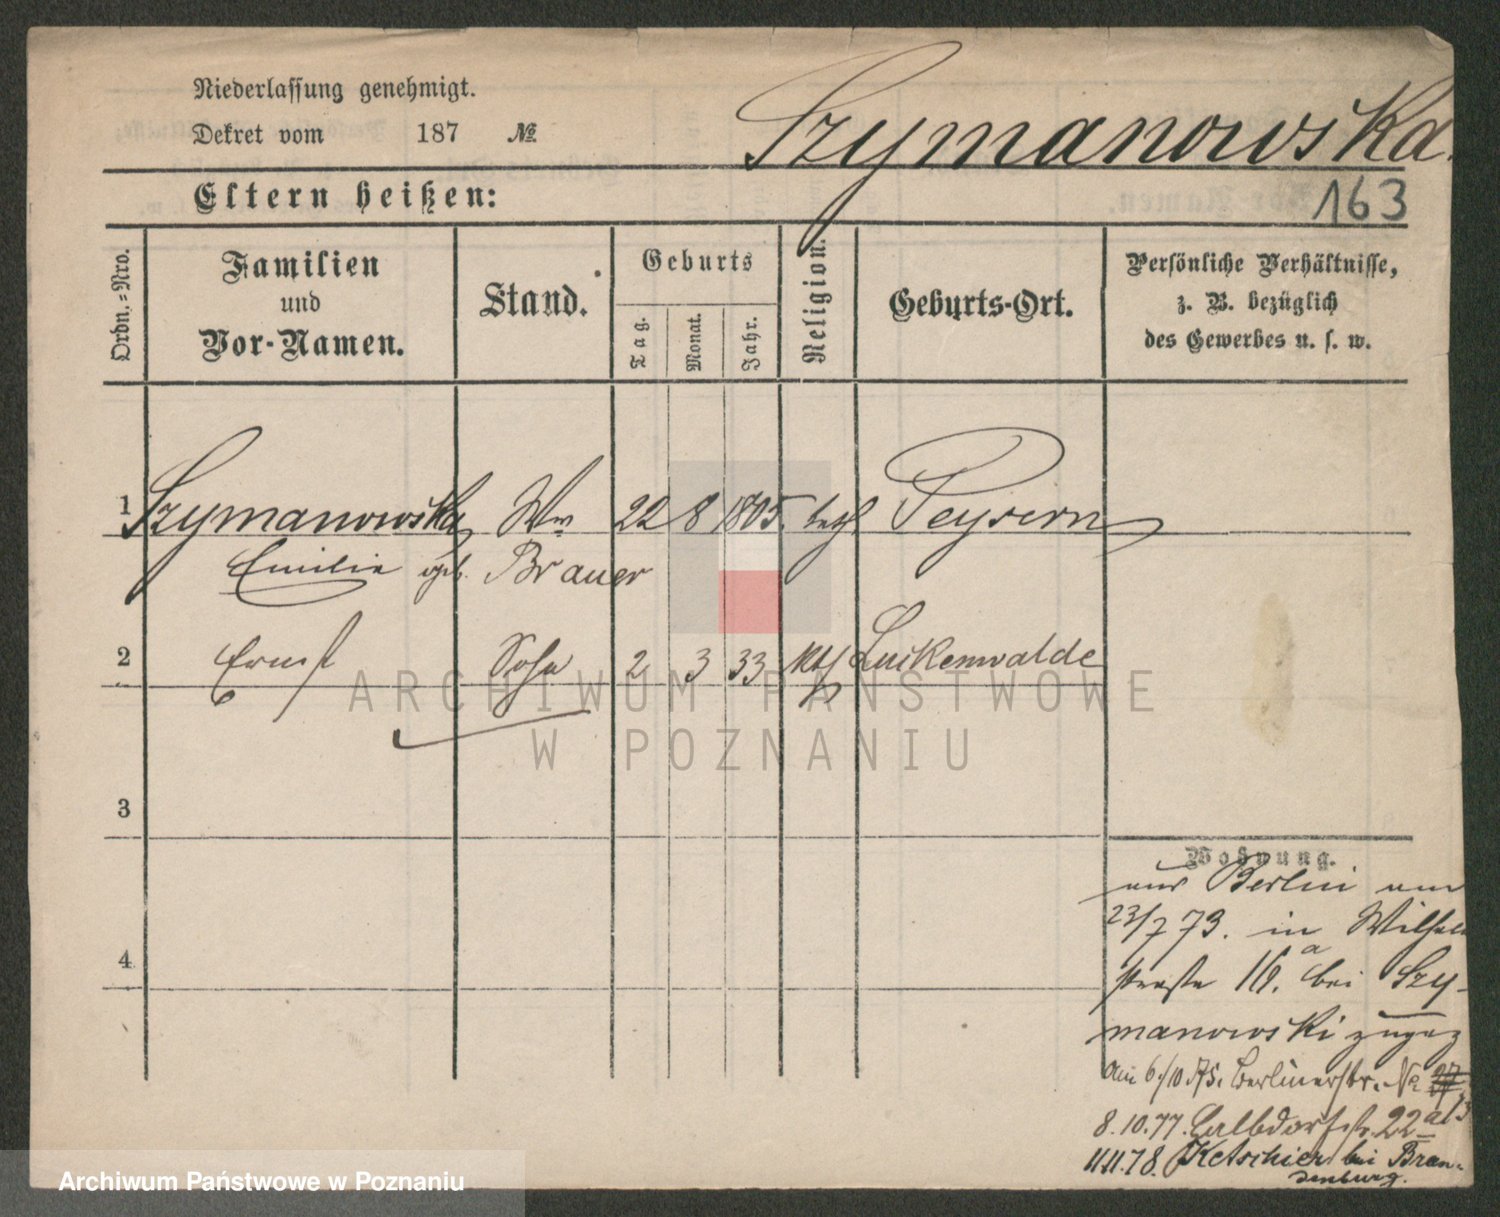 Niederlassung genehmigt.
Dekret vom 187 №
Szymanowska.
Eltern heißen:
163
Ordn.-Nro.
Familien
und
Vor-Namen.
Stand.
Geburts
Tag.
Monat.
Jahr.
Religion.
Geburts-Ort.
Persönliche Verhältnisse,
z. B. bezüglich
des Gewerbes u. s. w.
1 Szymanowska Ww 22 8 1805. Peysern
Emilie geb. Brauer
2 Ernst Sohn 2 3 33 kth Luckenwalde
3
4
Wohnung.
aus Berlin am
23/7 73. in Wilhelm
straße bei Szy-
manowski zugez
Am 6/10 75. Berlinerstr. No
8.10.77. 22
11.11.78. bei Bran-
denburg.
ARCHIWUM PAŃSTWOWE
W POZNANIU
Archiwum Państwowe w Poznaniu